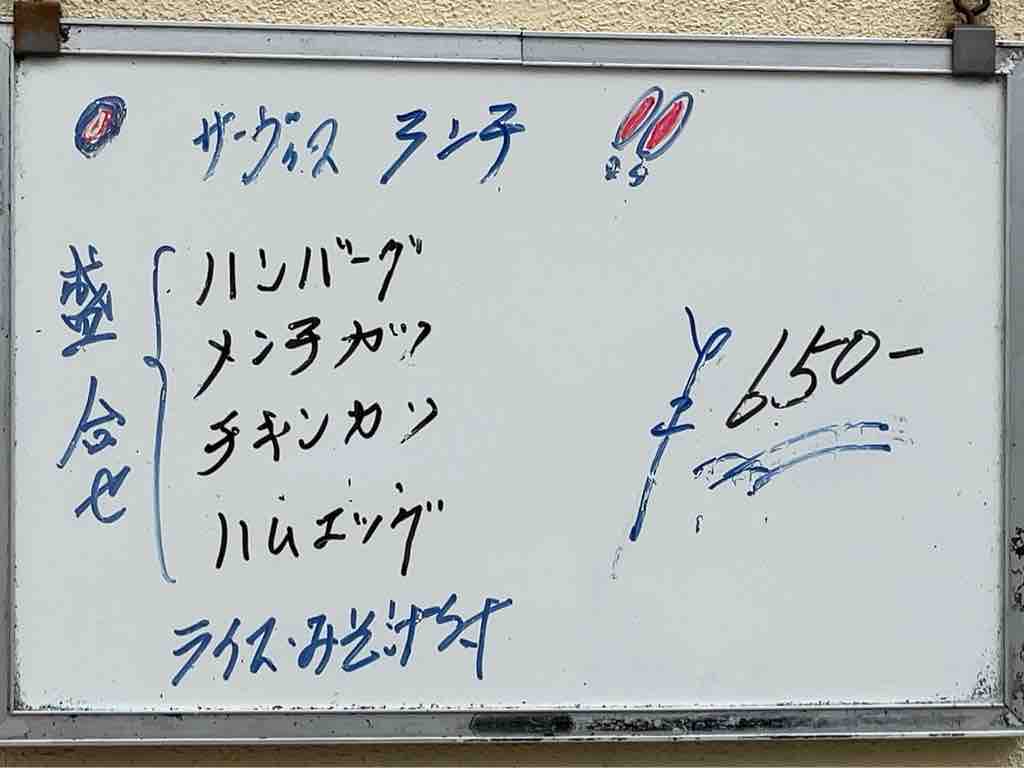 サーヴィス ランチ !!
盛合せ
ハンバーグ
メンチカツ
チキンカツ
ハムエッグ
ライス・みそ汁付
¥650-